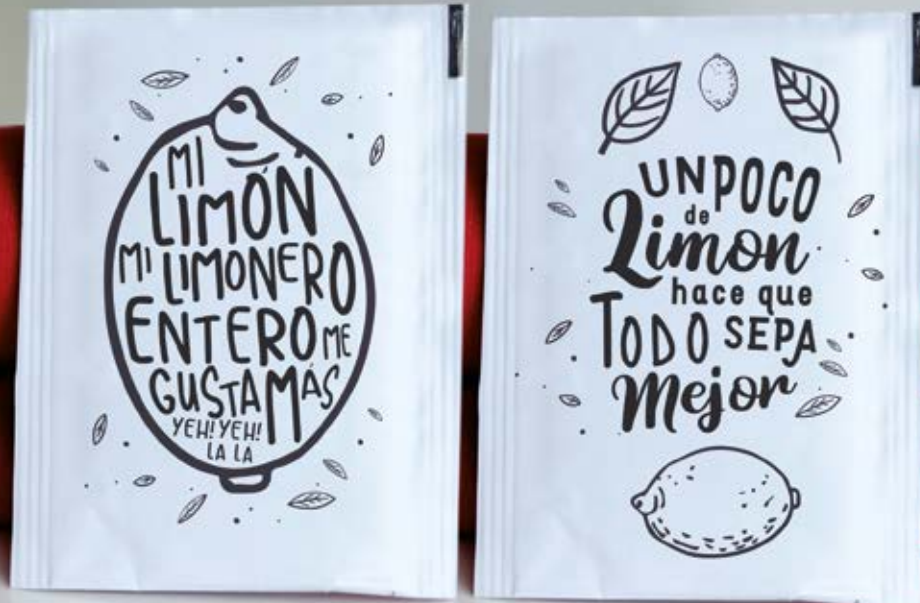 MI
LIMÓN
MI LIMONERO
ENTERO ME
GUSTA MÁS
YEH! YEH!
LA LA
UN POCO
de
Limon
hace que
TODO SEPA
Mejor